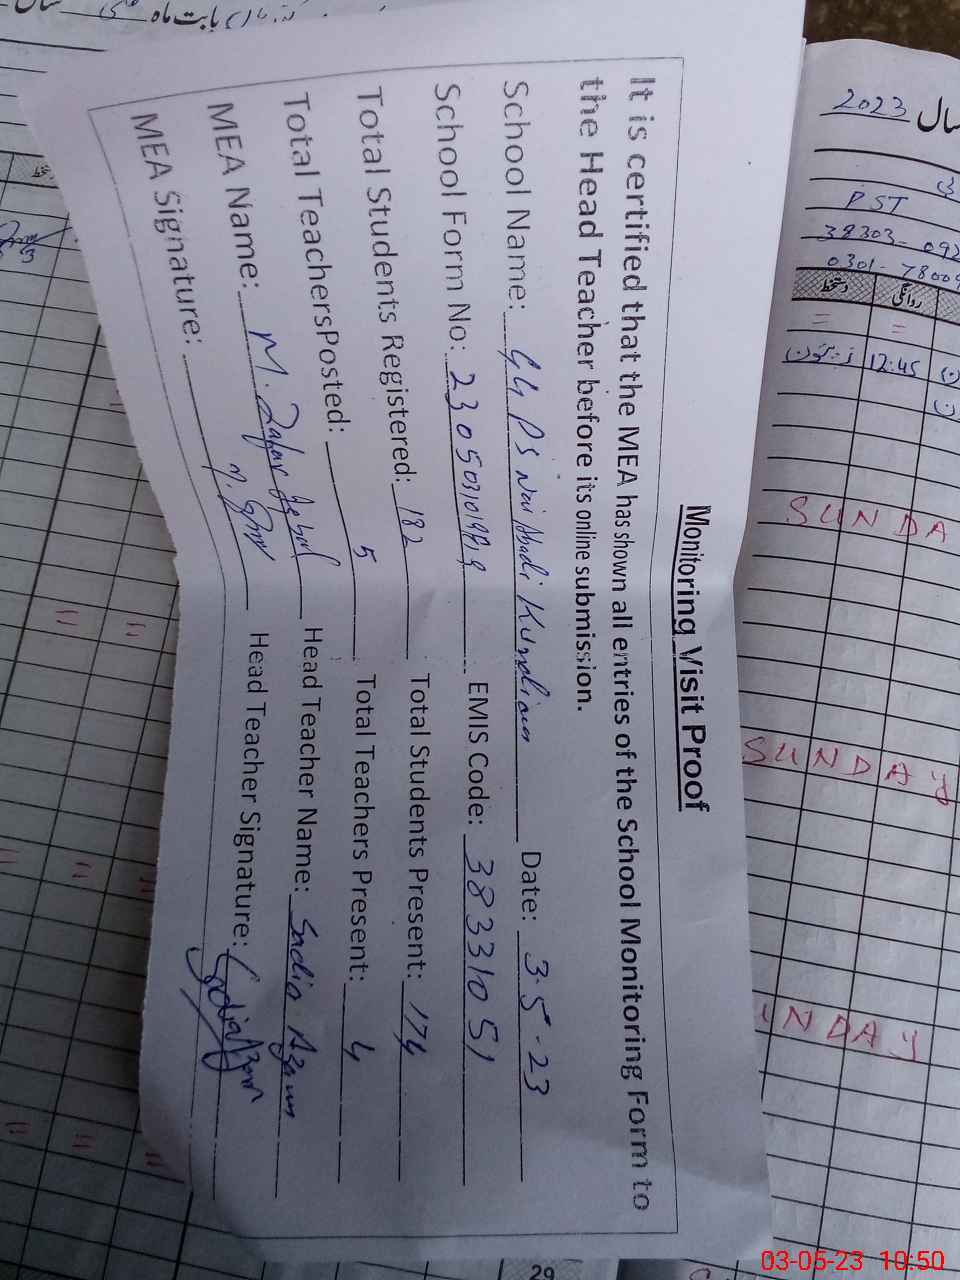 بابت ماه
Monitoring Visit Proof
It is certified that the MEA has shown all entries of the School Monitoring Form to
the Head Teacher before its online submission.
School Name: GGPS Nai Abadi Kundian Date: 3-5-23
School Form No: EMIS Code: 38331051
Total Students Registered: 182 Total Students Present: 174
Total TeachersPosted: 5 Total Teachers Present: 4
MEA Name: M. Zafar Iqbal Head Teacher Name: Sadia Azam
MEA Signature: Head Teacher Signature: Sadia Azam
سال 2023
PST
38303-092
0301-78009
دستخط روانگی
12:45
SUNDA
SUNDAY
UNDAY
29
03-05-23 10:50